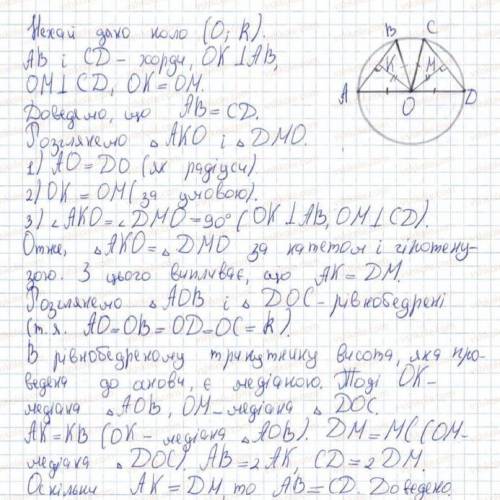 Нехай дано коло (O; R).
AB і CD – хорди, OK⊥AB,
OM⊥CD, OK=OM.
Доведемо, що AB=CD.
Розглянемо △AKO і △DMO.
1) AO=DO (як радіуси).
2) OK=OM (за умовою).
3) ∠AKO=∠DMO=90° (OK⊥AB, OM⊥CD).
Отже, △AKO=△DMO за катетом і гіпотену-
зою. З цього випливає, що AK=DM.
Розглянемо △AOB і △DOC – рівнобедрені
(т.я. AO=OB=OD=OC=R).
В рівнобедреному трикутнику висота, яка про-
ведена до основи, є медіаною. Тоді OK–
медіана △AOB, OM–медіана △DOC.
AK=KB (OK–медіана △AOB). DM=MC (OM–
медіана △DOC). AB=2AK, CD=2DM.
Оскільки AK=DM, то AB=CD. Доведено.
B C
K M
A O D